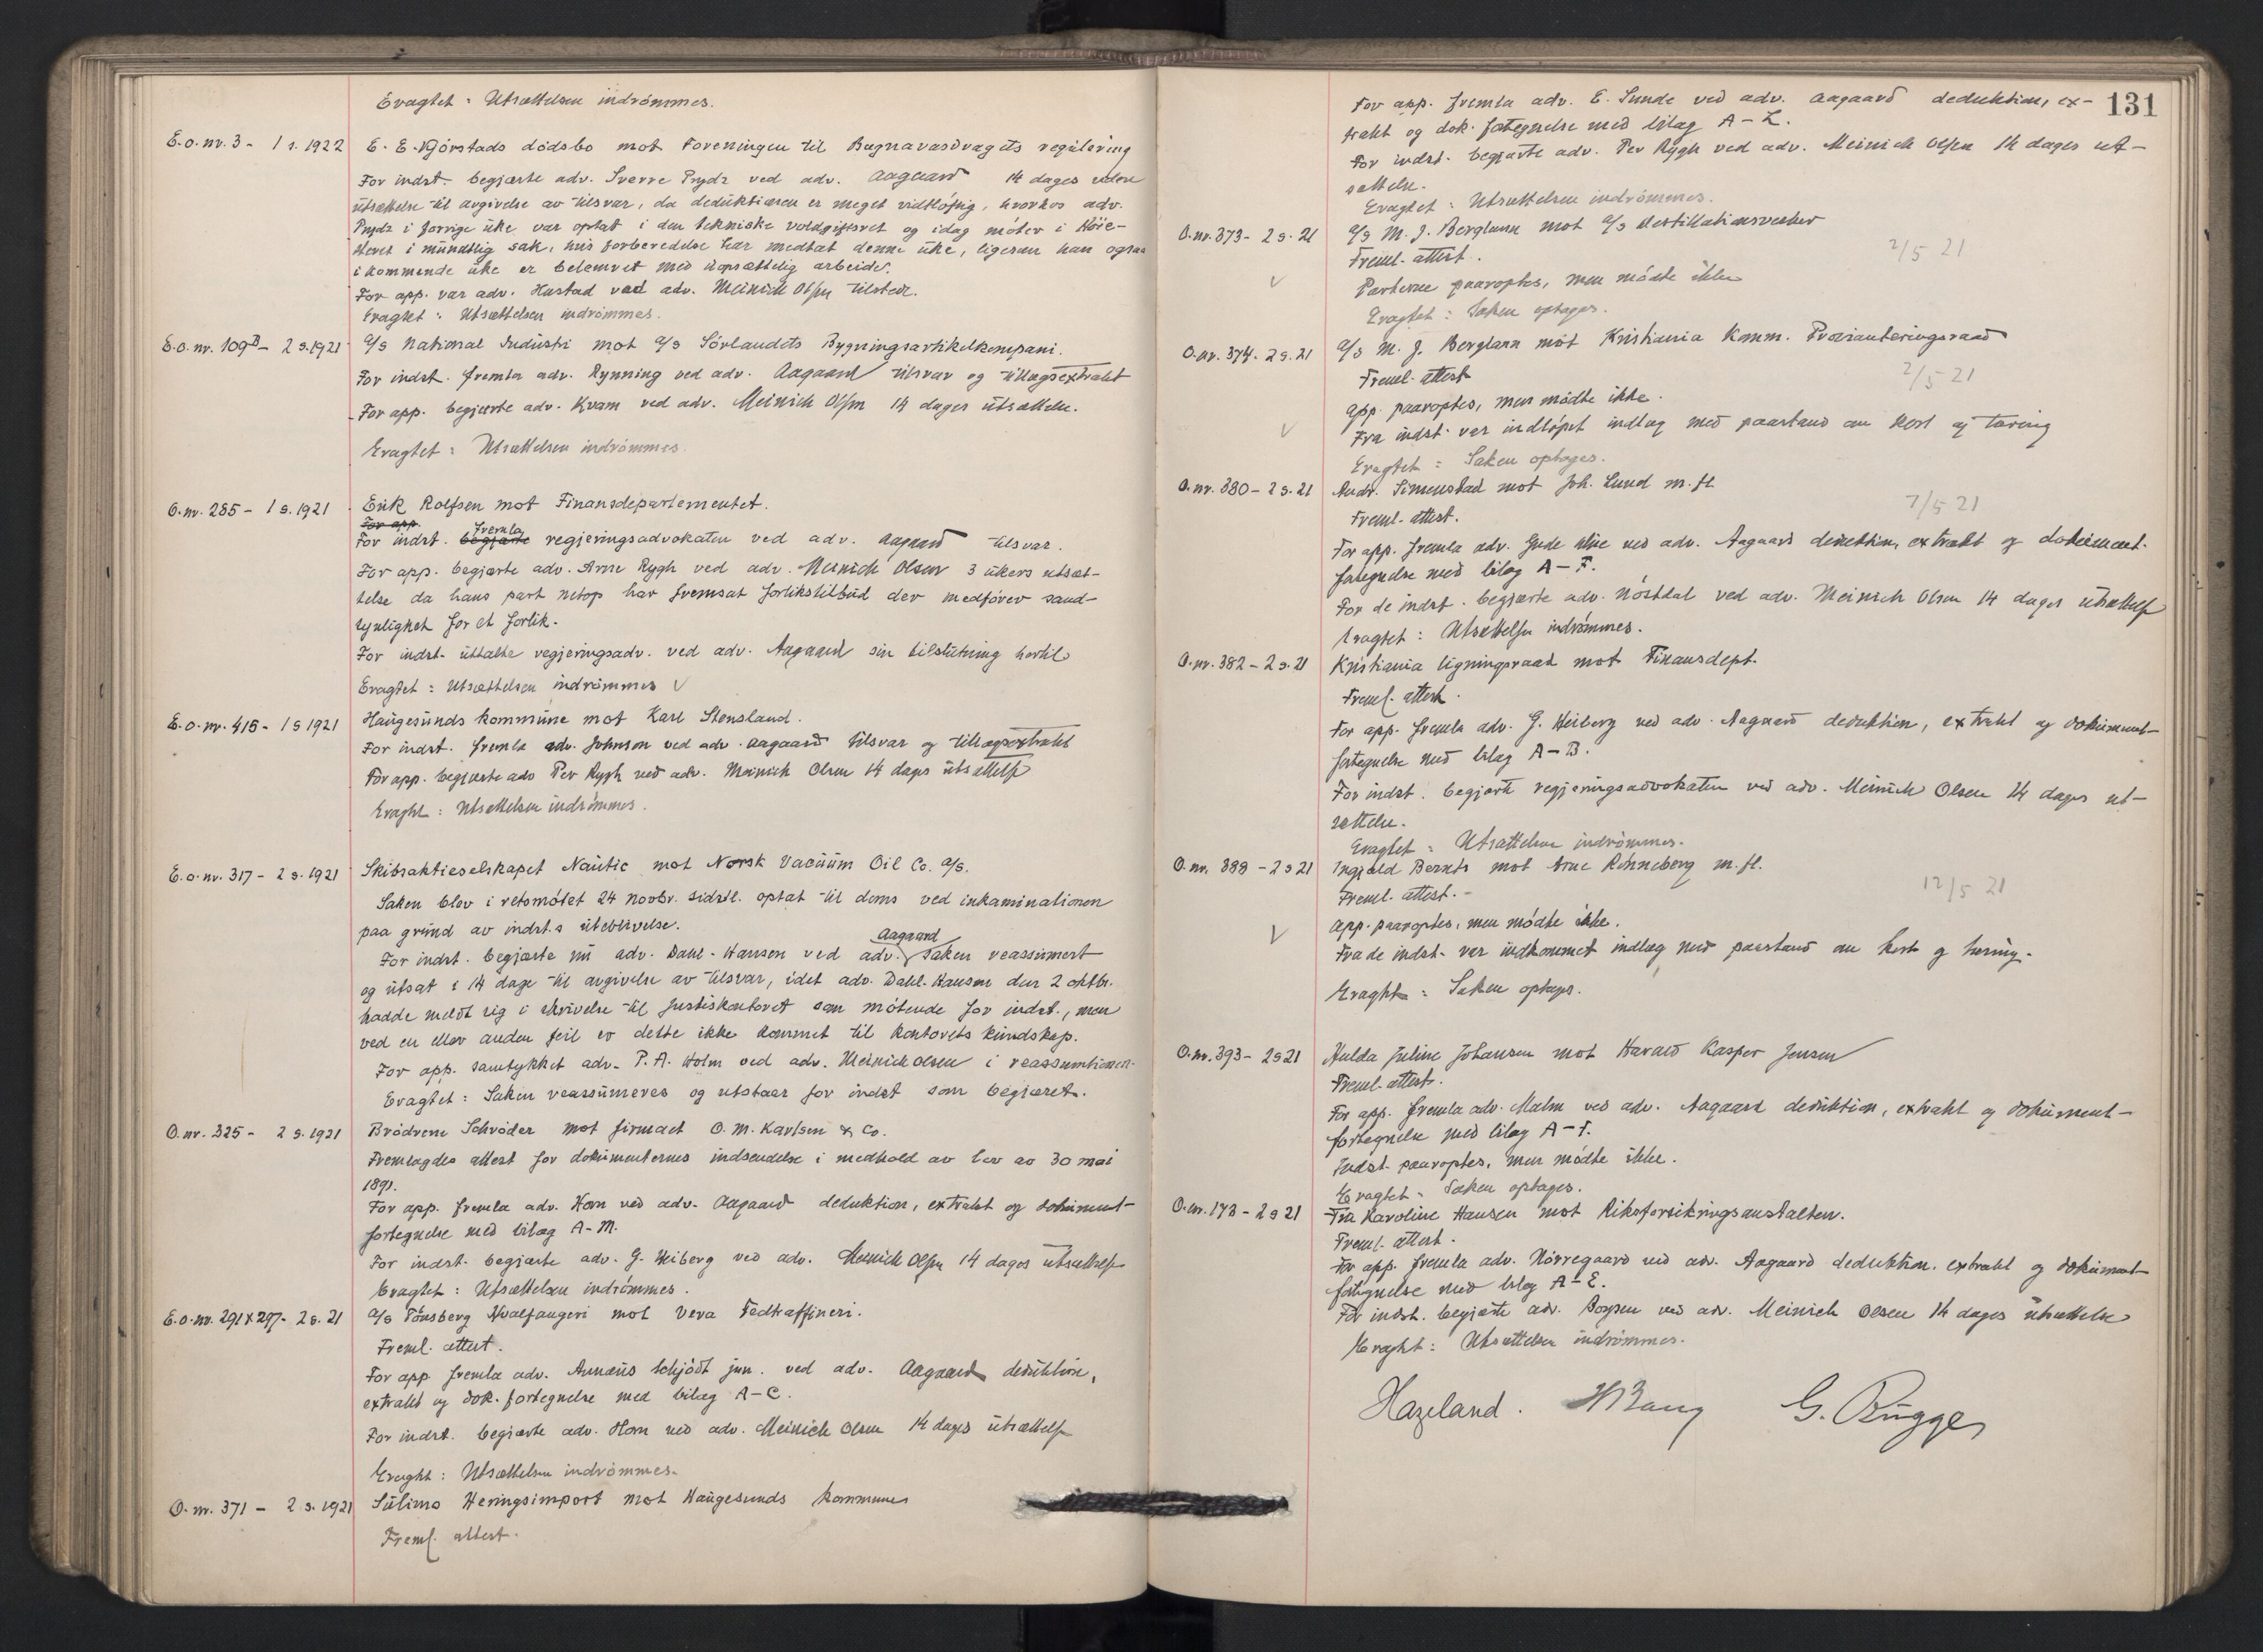 Eragtet : Utsættelsen indrömmes.
E.o.nr. 3 - 1 s. 1922 E. E. Kjörstads dödsbo mot Foreningen til Bægnavasdragets regulering
For indst. begjærte adv. Sverre Prydz ved adv. Aagaard 14 dages videre
utsættelse til avgivelse av tilsvar, da deduktionen er meget vidtlöftig, hvorhos adv.
Prydz i forrige uke var optat i den tekniske voldgiftsret og idag möter i Höie-
steret i mundtlig sak, hvis forberedelse har medtat denne uke, ligesom han ogsaa
i kommende uke er belemret med uopsættelig arbeide.
For app. var adv. Hustad ved adv. Meinich Olsen tilstede.
Eragtet : Utsættelsen indrömmes.
E.o.nr. 109B - 2 s. 1921 A/S National Industri mot A/S Sörlandets Bygningsartikelkompani.
For indst. fremla adv. Rynning ved adv. Aagaard tilsvar og tillægsextrakt
For app. begjærte adv. Kvam ved adv. Meinich Olsen 14 dages utsættelse.
Eragtet : Utsættelsen indrömmes.
O.nr. 285 - 1 s. 1921 Erik Rolfsen mot Finansdepartementet.
For app.
For indst. begjærte fremla regjeringsadvokaten ved adv. Aagaard tilsvar.
For app. begjærte adv. Arne Rygh ved adv. Meinich Olsen 3 ukers utsæt-
telse da hans part netop har fremsat forlikstilbud der medförer sand-
synlighet for et forlik.
For indst. uttalte regjeringsadv. ved adv. Aagaard sin tilslutning hertil
Eragtet : Utsættelsen indrömmes V
E.o.nr. 415 - 1 s 1921 Haugesunds kommune mot Karl Stensland.
For indst. fremla adv. Johnson ved adv. Aagaard tilsvar og tillægsextrakt
For app. begjærte adv Per Rygh ved adv. Meinich Olsen 14 dages utsættelse
Eragtet : Utsættelsen indrömmes.
E.o.nr. 317 - 2 s. 1921 Skibsaktieselskapet Nautic mot Norsk Vacuum Oil Co. A/S.
Saken blev i retsmötet 24 novbr. sidstl. optat til doms ved inkaminationen
paa grund av indst.s uteblivelse.
For indst. begjærte nu adv. Dahl-Hansen ved adv. Aagaard saken reassumert
og utsat i 14 dage til avgivelse av tilsvar, idet adv. Dahl-Hansen den 2 oktbr.
hadde meldt sig i skrivelse til Justiskontoret som mötende for indst., men
ved en eller anden feil er dette ikke kommet til kontorets kundskap.
For app. samtykket adv. P. A. Holm ved adv. Meinich Olsen i reassumtionen.
Eragtet : Saken reassumeres og utstaar for indst som begjæret.
O.nr. 325 - 2 s. 1921 Brödrene Schröder mot firmaet O. M. Karlsen & Co.
Fremlagdes attest for dokumenternes indsendelse i medhold av lov av 30 mai
1891.
For app. fremla adv. Horn ved adv. Aagaard deduktion, extrakt og dokument-
fortegnelse med bilag A-M.
For indst. begjærte adv. G. Heiberg ved adv. Meinich Olsen 14 dages utsættelse
Eragtet : Utsættelsen indrömmes.
E.o.nr. 291 x 297 - 2 s. 21 A/S Tönsberg Hvalfangeri mot Vera Fedtraffineri.
Freml. attest.
For app. fremla adv. Annæus Schjödt jun. ved adv. Aagaard deduktion,
extrakt og dok. fortegnelse med bilag A-C.
For indst. begjærte adv. Horn ved adv. Meinich Olsen 14 dages utsættelse
Eragtet : Utsættelsen indrömmes.
O.nr. 371 - 2 s. 1921 Sulima Heringsimport mot Haugesunds kommune
Freml. attest.
131
For app. fremla adv. E. Sunde ved adv. Aagaard deduktion, ex-
trakt og dok. fortegnelse med bilag A-L.
For indst. begjærte adv. Per Rygh ved adv. Meinich Olsen 14 dages ut-
sættelse.
Eragtet : Utsættelsen indrömmes.
O.nr. 373 - 2 s. 21 A/S M. J. Berglann mot A/S Destillationsverker
Freml. attest. 2/5 21
V Parterne paaroptes, men mödte ikke
Eragtet : Saken optages.
O.nr. 374 - 2 s. 21 A/S M. J. Berglann mot Kristiania Komm. Provianteringsraad
Freml. attest 2/5 21
App. paaroptes, men mödte ikke.
V Fra indst. var indlöpet indlæg med paastand om kost og tæring
Eragtet : Saken optages.
O.nr. 380 - 2 s. 21 Andr. Simenstad mot Joh. Lund m. fl.
Freml. attest. 7/5 21
For app. fremla adv. Gude ved adv. Aagaard deduktion, extrakt og dokument-
fortegnelse med bilag A-F.
For de indst. begjærte adv. Nöstdal ved adv. Meinich Olsen 14 dages utsættelse
Eragtet : Utsættelsen indrömmes.
O.nr. 382 - 2 s. 21 Kristiania ligningsraad mot Finansdept.
Freml. attest.
For app. fremla adv. G. Heiberg ved adv. Aagaard deduktion, extrakt og dokument-
fortegnelse med bilag A-B.
For indst. begjærte regjeringsadvokaten ved adv. Meinich Olsen 14 dages ut-
sættelse.
Eragtet : Utsættelsen indrömmes.
O.nr. 388 - 2 s 21 Ingjald Bernts mot Arne Rönneberg m. fl.
Freml. attest. 12/5 21
V App. paaroptes, men mödte ikke.
Fra de indst. var indkommet indlæg med paastand om kost og tæring.
Eragtet : Saken optages.
O.nr. 393 - 2 s 21 Hulda Juline Johansen mot Harald Kasper Jensen
Freml. attest.
For app. fremla adv. Malm ved adv. Aagaard deduktion, extrakt og dokument-
fortegnelse med bilag A-F.
Indst. paaroptes, men mödte ikke.
Eragtet : Saken optages.
O.nr. 173 - 2 s 21 Fru Karoline Hansen mot Riksforsikringsanstalten.
Freml. attest.
For app. fremla adv. Nörregaard ved adv. Aagaard deduktion, extrakt og dokument-
fortegnelse med bilag A-E.
For indst. begjærte adv. Boysen ved adv. Meinich Olsen 14 dages utsættelse
Eragtet : Utsættelsen indrömmes.
Hazeland. HBang G. Bugge